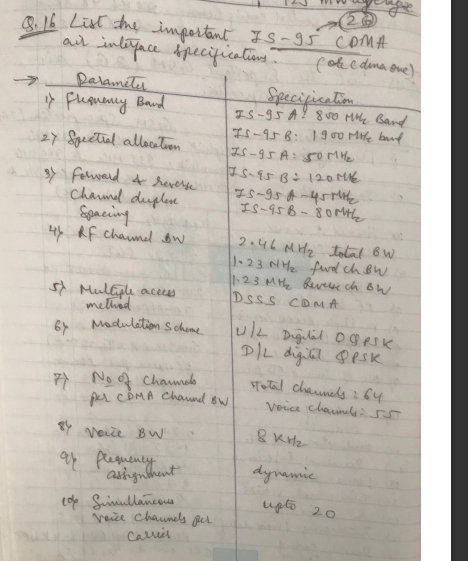 Q.16 List the important IS-95 CDMA
air interface specifications. (or cdma one)
Parameter
Specification
1) Frequency Band
IS-95 A: 800 MHz Band
IS-95 B: 1900 MHz band
2) Spectral allocation
IS-95 A: 50 MHz
IS-95 B: 120 MHz
3) Forward & reverse
Channel duplex
Spacing
IS-95 A - 45 MHz
IS-95 B - 80 MHz
4) RF Channel BW
2.46 MHz total BW
1.23 MHz fwd ch BW
1.23 MHz Reverse ch BW
5) Multiple access
method
DSSS CDMA
6) Modulation Scheme
U/L Digital OQPSK
D/L digital QPSK
7) No of Channels
per CDMA Channel BW
Total channels : 64
Voice channels = 55
8) Voice BW
8 KHz
9) frequency
assignment
dynamic
10) Simultaneous
Voice channels per
Carrier
upto 20